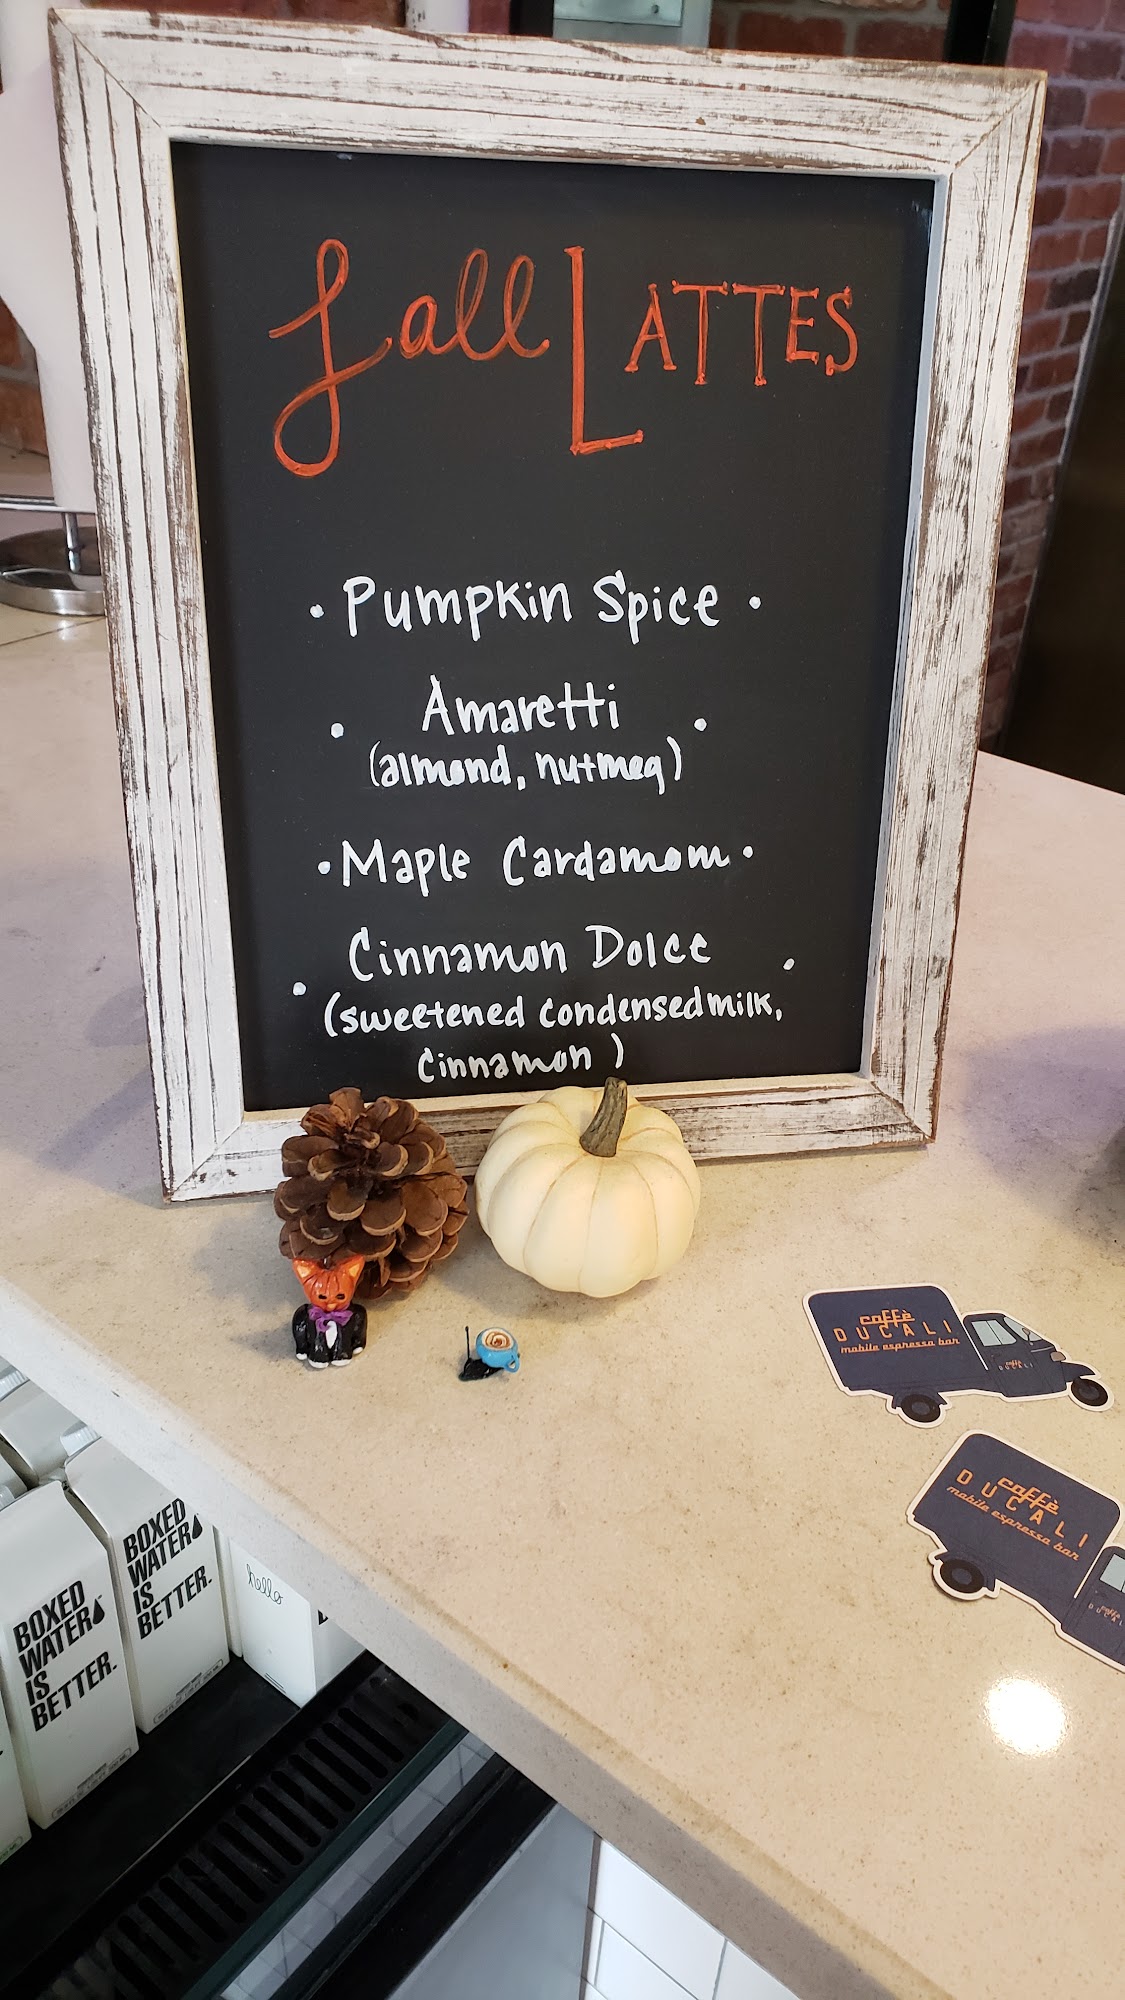 Fall LATTES
• Pumpkin Spice •
• Amaretti •
(almond, nutmeg)
• Maple Cardamom •
• Cinnamon Dolce •
(sweetened condensed milk,
cinnamon)
caffè
DUCALI
mobile espresso bar
caffè
DUCALI
caffè
DUCALI
mobile espresso bar
caffè
BOXED
WATER
IS
BETTER.
BOXED
WATER
IS
BETTER.
hello